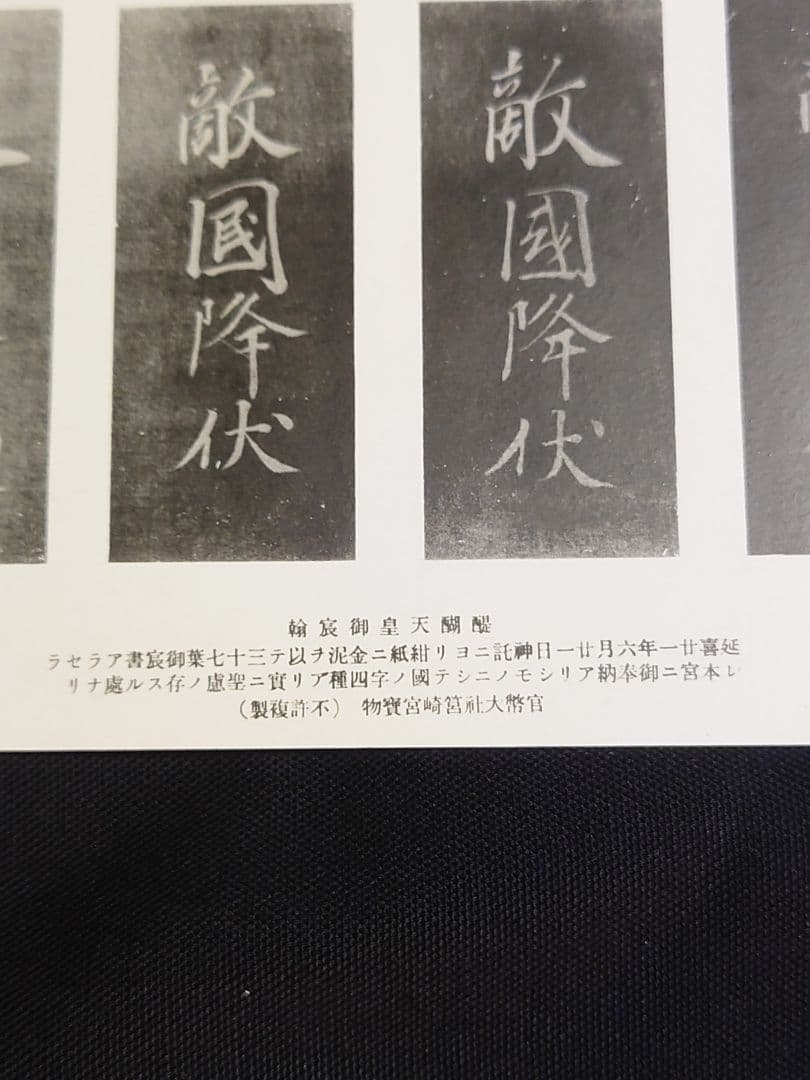 敵國降伏
敵囻降伏
醍醐天皇御宸翰
延喜廿一年六月廿一日神託ニヨリ紺紙ニ金泥ヲ以テ三十七葉御宸書アラセラ
レ本宮ニ御奉納アリシモノニシテ國ノ字四種アリ實ニ聖慮ノ存スル處ナリ
官幣大社筥崎宮寶物 (不許複製)